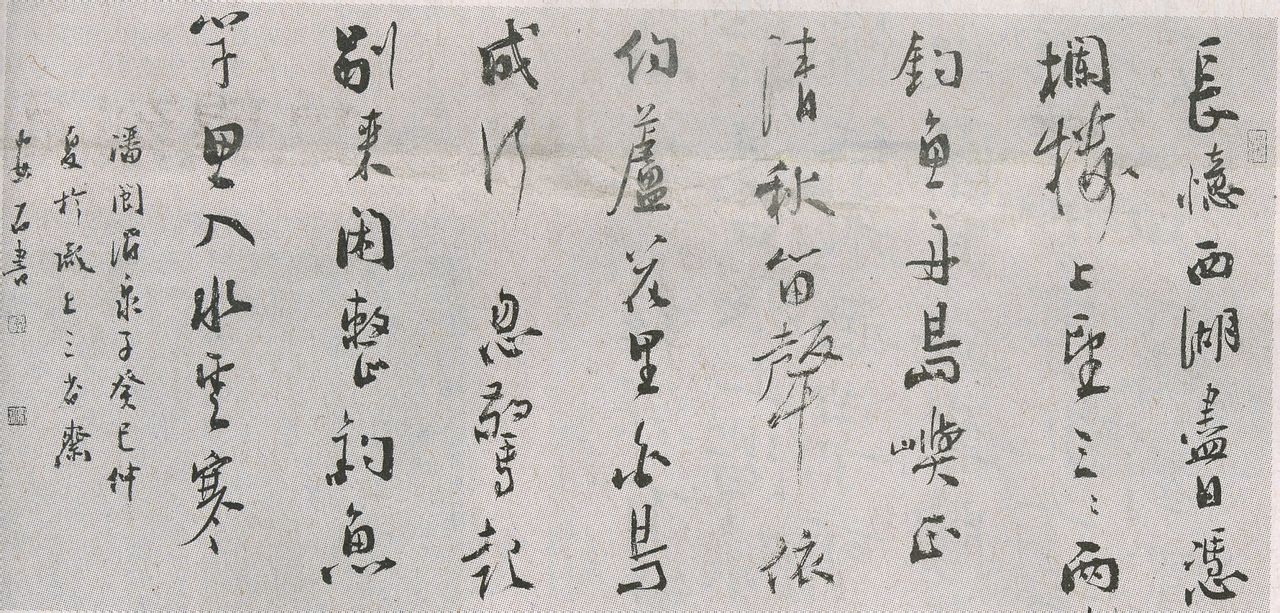 長憶西湖盡日憑
欄樓上望三〻兩〻
釣魚舟島嶼正
清秋笛聲依
約蘆花里白鳥
成行忽驚起
別來闲整釣魚
竿思入水雲寒
潘閬酒泉子癸巳仲
夏於上三省齋
石書